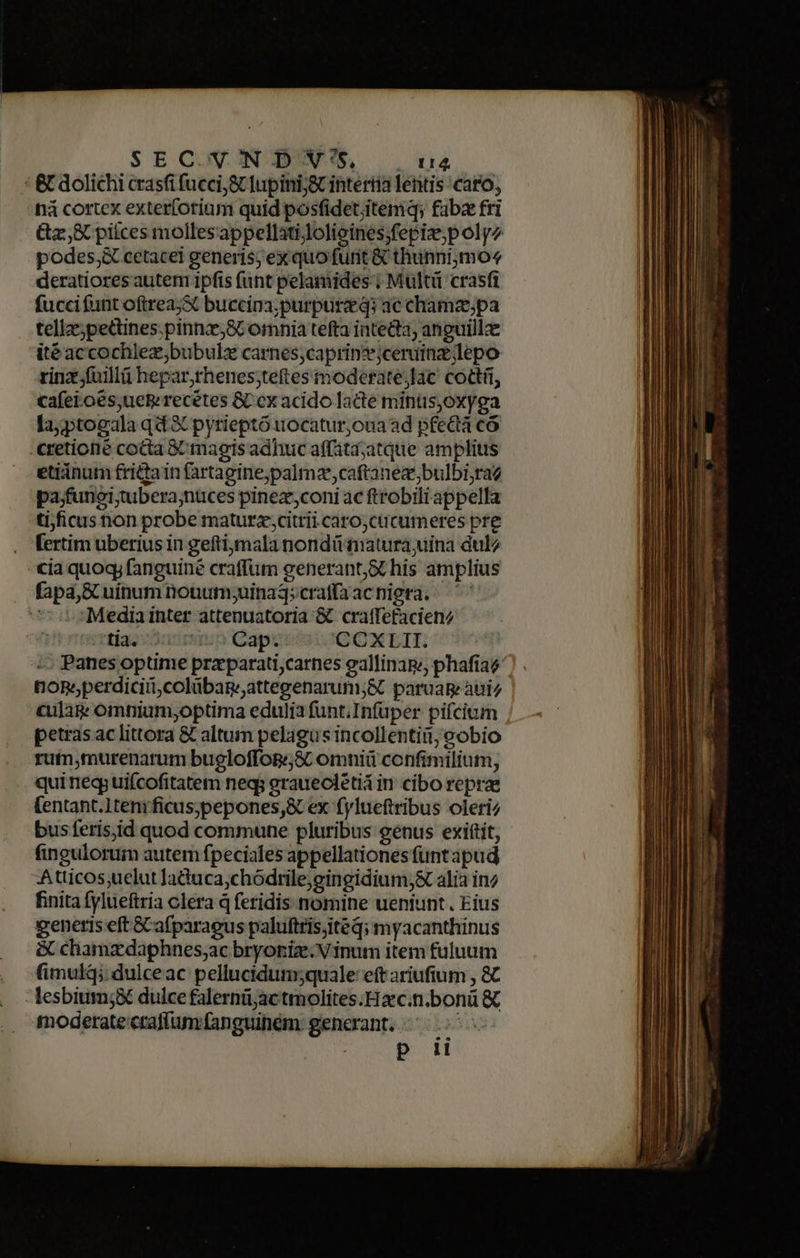 SECVNDVS. 114
& dolichi crasfi fucci,& lupini,& interna lentis caro,
nā cortex exterſorium quid posſidet,itemq; fabæ fri
ctæ,& piſces molles appellati,loligines,ſepiæ,poly⸗
podes,& cetacei generis, ex quo ſunt & thunni,mo⸗
deratiores autem ipſis ſunt pelamides; Multū crasſi
ſucci ſunt oſtrea,& buccina,purpuræq; ac chamæ,pa
tellæ,pectines.pinnæ,& omnia teſta intecta, anguillæ
itē ac cochleæ,bubulæ carnes,caprinæ,ceruinæ,lepo
rinæ,ſuillū hepar,rhenes,teſtes moderate,lac coctū,
caſei oēs,ueꝝ recētes & ex acido lacte minus,oxyga
la,ꝓtogala qd & pyrieptō uocatur,oua ad ꝑfectā cō
cretionē cocta & magis adhuc aſſata,atque amplius
etiānum fricta in ſartagine,palmæ,caſtaneæ,bulbi,ra⸗
pa,fungi,tubera,nuces pineæ,coni ac ſtrobili appella
ti,ficus non probe maturæ,citrii caro,cucumeres pre
ſertim uberius in geſti,mala nondū matura,uina dul⸗
cia quoq; ſanguinē craſſum generant,& his amplius
ſapa,& uinum nouum,uinaq; craſſa ac nigra.
Media inter attenuatoria & craſſefacien⸗
tia. Cap. CCXLII.
Panes optime præparati,carnes gallinaꝝ, phaſia⸗
noꝝ,perdiciū,colūbaꝝ,attegenarum,& paruaꝝ aui⸗
culaꝝ omnium,optima edulia ſunt.Inſuper piſcium
petras ac littora & altum pelagus incollentiū, gobio
rum,murenarum bugloſſoꝝ,& omniū conſimilium,
qui neq; uiſcoſitatem neq; graueolētiā in cibo repræ
ſentant.Item ficus,pepones,& ex ſylueſtribus oleri⸗
bus feris,id quod commune pluribus genus exiſtit,
ſingulorum autem ſpeciales appellationes ſunt apud
Atticos,uelut lactuca,chōdrile,gingidium,& alia in⸗
finita ſylueſtria olera q̄ ſeridis nomine ueniunt. Eius
generis eſt & aſparagus paluſtris,itēq; myacanthinus
& chamædaphnes,ac bryoniæ.Vinum item fuluum
ſimulq; dulce ac pellucidum,quale eſt ariuſium, &
lesbium,& dulce falernū,ac tmolites.Hæc.n.bonū &
moderate craſſum ſanguinem generant.
p ii